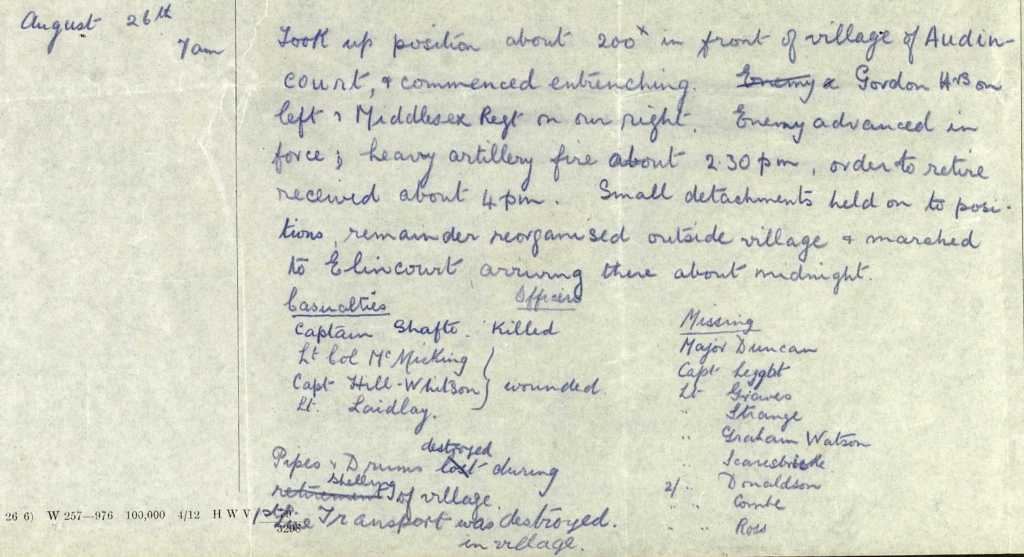 August 26th
7am
Took up position about 200x in front of village of Audin-
court, & commenced entrenching. Enemy & Gordon Hrs on
left & Middlesex Regt on our right. Enemy advanced in
force; heavy artillery fire about 2.30 pm, order to retire
received about 4 pm. Small detachments held on to posi-
tions, remainder reorganised outside village & marched
to Elincourt arriving there about midnight.
Casualties Officers
Captain Shafto. Killed
Lt Col McMicking
Capt Hill-Whitson } wounded.
Lt. Laidlay.
Missing
Major Duncan
Capt Leggat
Lt Graves
" Strange
" Graham Watson
" Scaresbricke
2/ " Donaldson
" Combe
" Ross
destroyed
Pipes & Drums lost during
shelling
retirement of village.
1st Line Transport was destroyed.
in village.
26 6) W 257—976 100,000 4/12 H W V